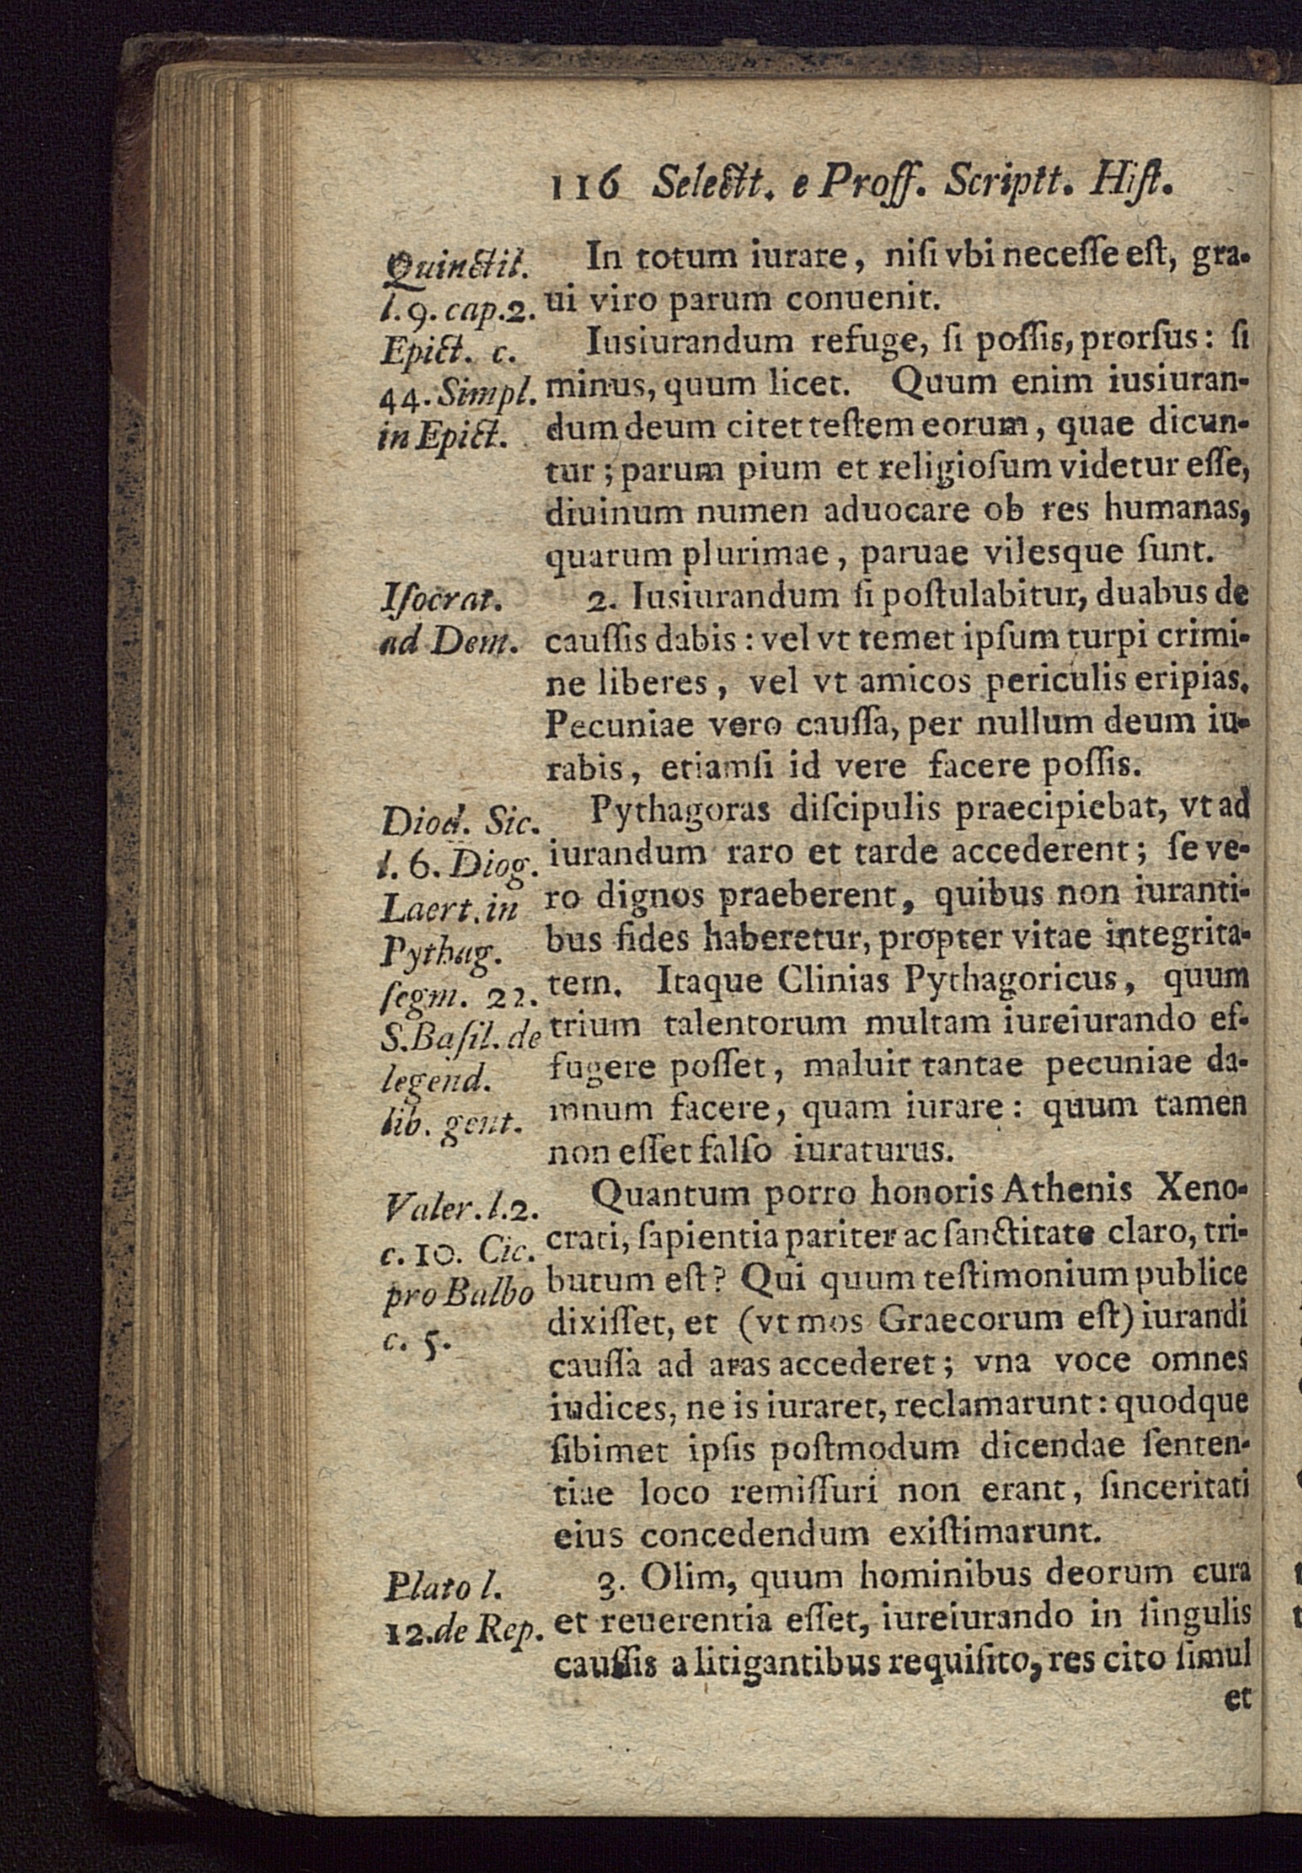 116 Selectt. e Proff. Scriptt. Hiſt.
Quinctil.
l. 9. cap. 2.
Epict. c.
44. Simpl.
in Epict.
In totum iurare, niſi vbi neceſſe eſt, gra-
ui viro parum conuenit.
Iusiurandum refuge, ſi poſſis, prorſus: ſi
minus, quum licet. Quum enim iusiuran-
dum deum citet teſtem eorum, quae dicun-
tur; parum pium et religioſum videtur eſſe,
diuinum numen aduocare ob res humanas,
quarum plurimae, paruae vilesque ſunt.
Iſocrat.
ad Dem.
2. Iusiurandum ſi poſtulabitur, duabus de
cauſſis dabis: vel vt temet ipſum turpi crimi-
ne liberes, vel vt amicos periculis eripias.
Pecuniae vero cauſſa, per nullum deum iu-
rabis, etiamſi id vere facere poſſis.
Diod. Sic.
l. 6. Diog.
Laert. in
Pythag.
ſegm. 22.
S. Baſil. de
legend.
lib. gent.
Pythagoras diſcipulis praecipiebat, vt ad
iurandum raro et tarde accederent; ſe ve-
ro dignos praeberent, quibus non iuranti-
bus fides haberetur, propter vitae integrita-
tem. Itaque Clinias Pythagoricus, quum
trium talentorum multam iureiurando ef-
fugere poſſet, maluit tantae pecuniae da-
mnum facere, quam iurare: quum tamen
non eſſet falſo iuraturus.
Valer. l. 2.
c. 10. Cic.
pro Balbo
c. 5.
Quantum porro honoris Athenis Xeno-
crati, ſapientia pariter ac ſanctitate claro, tri-
butum eſt? Qui quum teſtimonium publice
dixiſſet, et (vt mos Graecorum eſt) iurandi
cauſſa ad aras accederet; vna voce omnes
iudices, ne is iuraret, reclamarunt: quodque
ſibimet ipſis poſtmodum dicendae ſenten-
tiae loco remiſſuri non erant, ſinceritati
eius concedendum exiſtimarunt.
Plato l.
12. de Rep.
3. Olim, quum hominibus deorum cura
et reuerentia eſſet, iureiurando in ſingulis
cauſſis a litigantibus requiſito, res cito ſimul
et